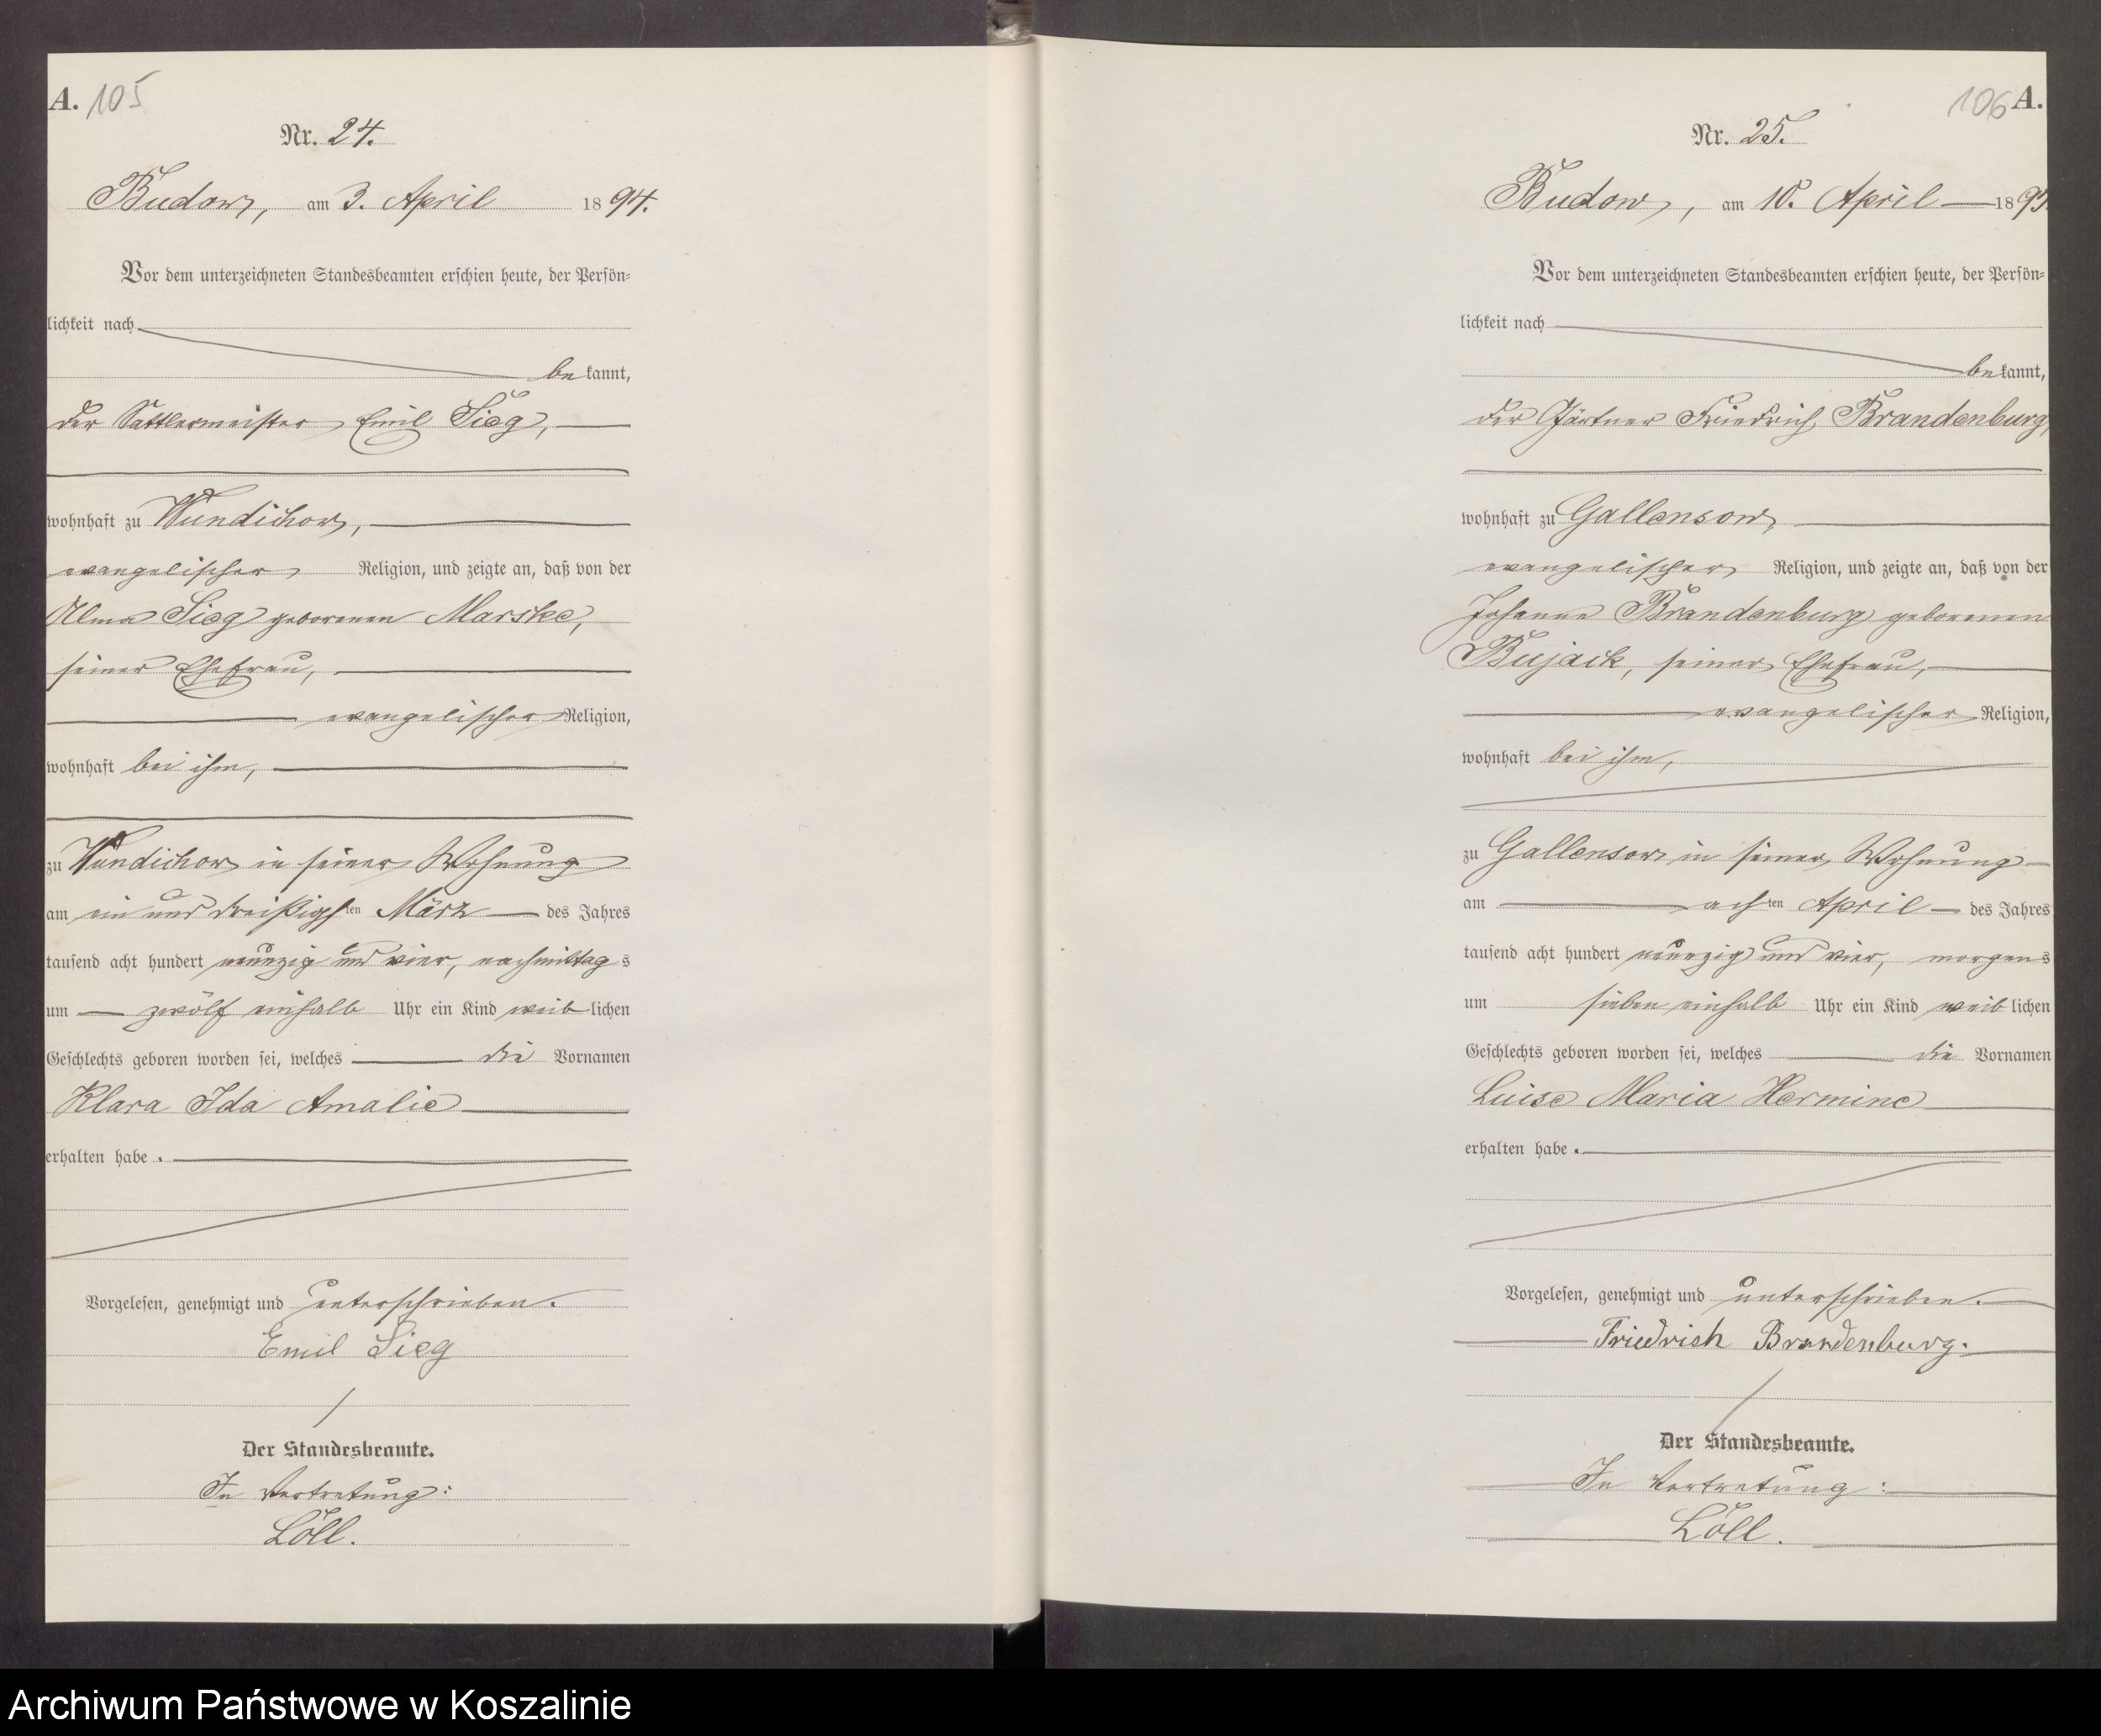 A. 105
Nr. 24.
Budow, am 3. April 1894.
Vor dem unterzeichneten Standesbeamten erschien heute, der Persön=
lichkeit nach
bekannt,
der Sattlermeister Emil Sieg,
wohnhaft zu Wundichow,
evangelischer Religion, und zeigte an, daß von der
Alma Sieg geborenen Marske,
seiner Ehefrau,
evangelischer Religion,
wohnhaft bei ihm,
zu Wundichow in seiner Wohnung
am ein und dreißigsten März des Jahres
tausend acht hundert neunzig und vier, nachmittags
um zwölf einhalb Uhr ein Kind weiblichen
Geschlechts geboren worden sei, welches die Vornamen
Klara Ida Amalie
erhalten habe.
Vorgelesen, genehmigt und unterschrieben.
Emil Sieg
Der Standesbeamte.
In Vertretung:
Löll.
106 A.
Nr. 25.
Budow, am 10. April 189
Vor dem unterzeichneten Standesbeamten erschien heute, der Persön=
lichkeit nach
bekannt,
der Gärtner Friedrich Brandenburg,
wohnhaft zu Gallensow,
evangelischer Religion, und zeigte an, daß von der
Johanne Brandenburg geborenen
Bujack, seiner Ehefrau,
evangelischer Religion,
wohnhaft bei ihm,
zu Gallensow in seiner Wohnung
am achten April des Jahres
tausend acht hundert neunzig und vier, morgens
um sieben einhalb Uhr ein Kind weiblichen
Geschlechts geboren worden sei, welches die Vornamen
Luise Maria Hermine
erhalten habe.
Vorgelesen, genehmigt und unterschrieben.
Friedrich Brandenburg.
Der Standesbeamte.
In Vertretung:
Löll.
Archiwum Państwowe w Koszalinie